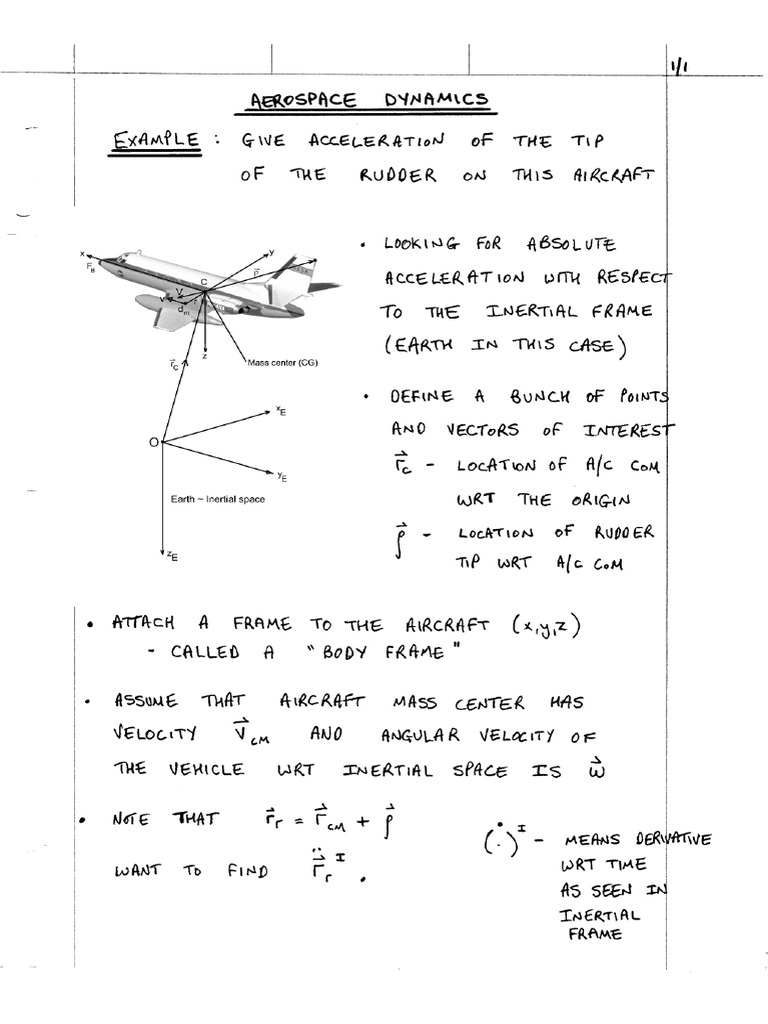 1/1
AEROSPACE DYNAMICS
EXAMPLE : GIVE ACCELERATION OF THE TIP
OF THE RUDDER ON THIS AIRCRAFT
x
F_B
y
ρ⃗
C
V
v
r
d_m
z
Mass center (CG)
r⃗_C
x_E
O
y_E
Earth ~ Inertial space
z_E
• LOOKING FOR ABSOLUTE
ACCELERATION WITH RESPECT
TO THE INERTIAL FRAME
(EARTH IN THIS CASE)
• DEFINE A BUNCH OF POINTS
AND VECTORS OF INTEREST
r⃗_C - LOCATION OF A/C COM
WRT THE ORIGIN
ρ⃗ - LOCATION OF RUDDER
TIP WRT A/C COM
• ATTACH A FRAME TO THE AIRCRAFT (x,y,z)
- CALLED A "BODY FRAME"
• ASSUME THAT AIRCRAFT MASS CENTER HAS
VELOCITY V⃗_CM AND ANGULAR VELOCITY OF
THE VEHICLE WRT INERTIAL SPACE IS ω⃗
• NOTE THAT r⃗_r = r⃗_CM + ρ⃗
WANT TO FIND r⃗̈_r^I .
(·)̇^I - MEANS DERIVATIVE
WRT TIME
AS SEEN IN
INERTIAL
FRAME